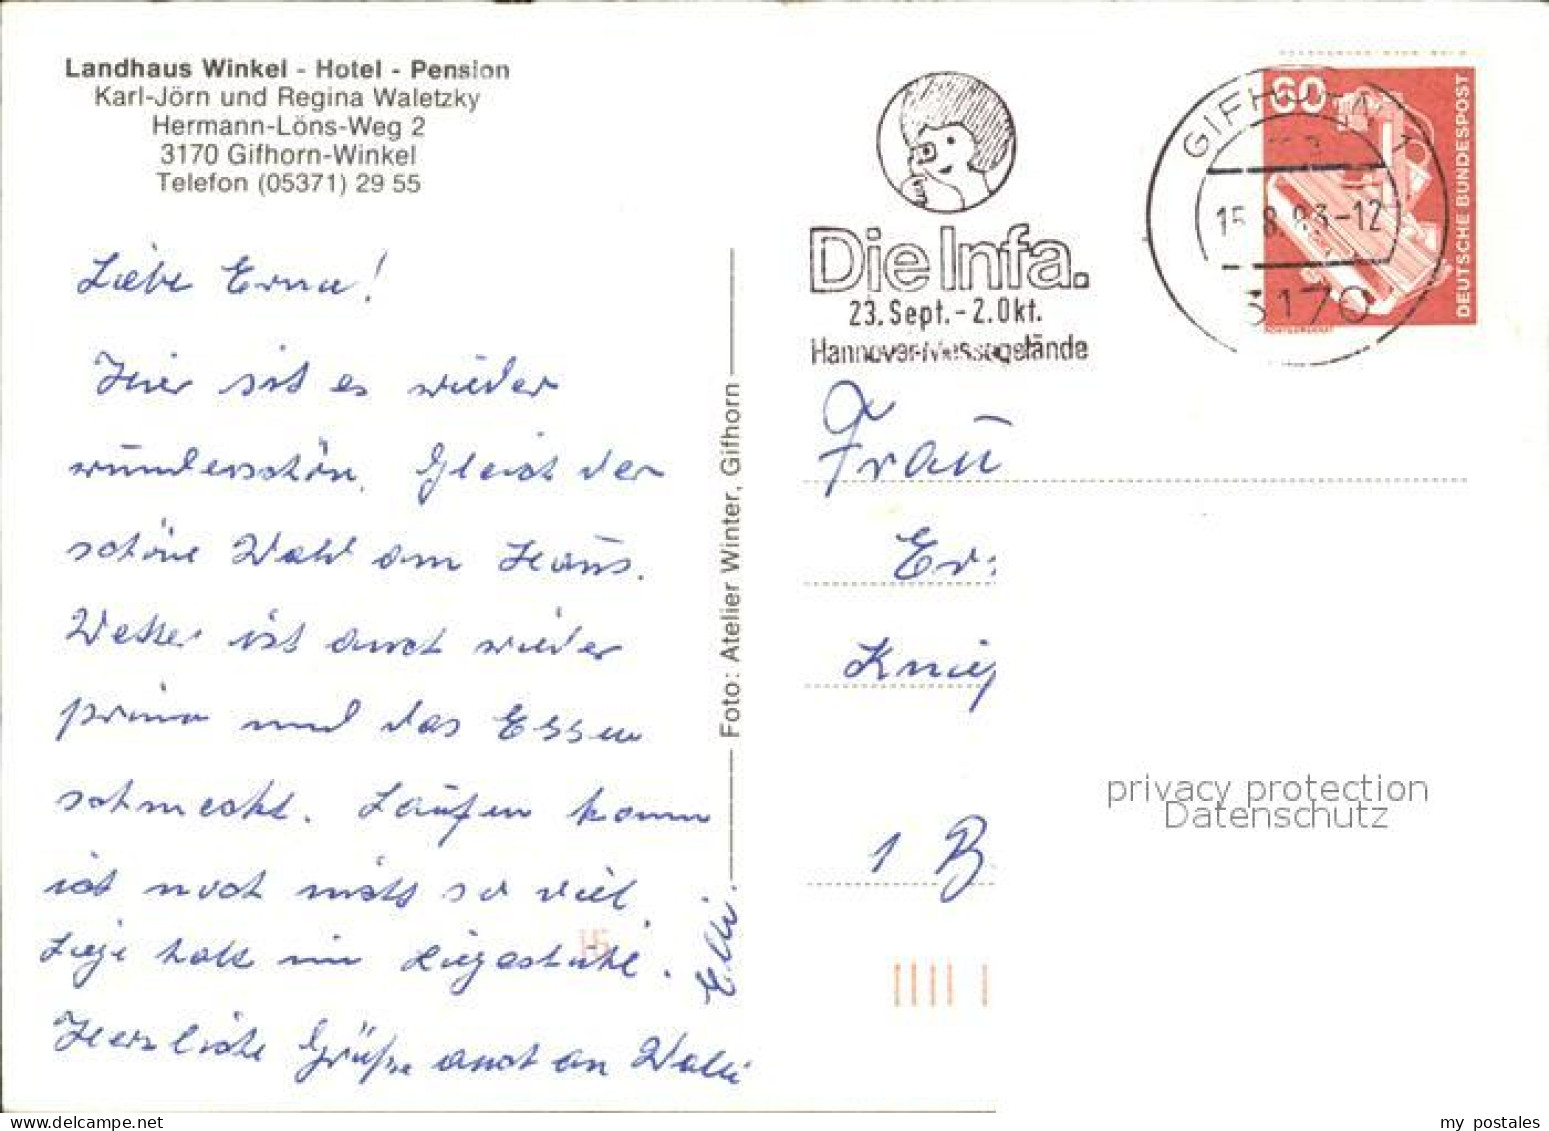 Landhaus Winkel - Hotel - Pension
Karl-Jörn und Regina Waletzky
Hermann-Löns-Weg 2
3170 Gifhorn-Winkel
Telefon (05371) 29 55
Liebe Erna!
Hier ist es wieder
wunderschön. Gleich der
schöne Wald am Haus.
Wetter ist auch wieder
prima und das Essen
schmeckt. Laufen kann
ich noch nicht so viel.
Liege halt im Liegestuhl.
Herzliche Grüße auch an Walli
Elli.
Foto: Atelier Winter, Gifhorn
Die Infa.
23. Sept. - 2. Okt.
Hannover-Messegelände
GIFHORN 1
15.8.83-12
3170
60
DEUTSCHE BUNDESPOST
Frau
Er
Knie
1 B
privacy protection
Datenschutz
my postales